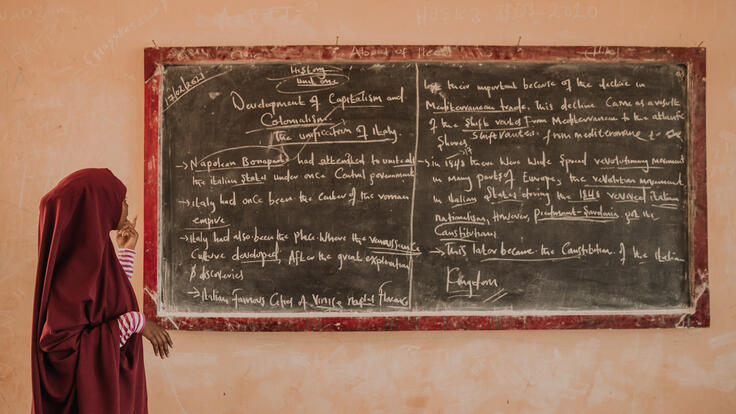 17/02/2021
History
Unit one
Development of Capitalism and
Colonialism
The unification of Italy.
→ Napolean Bonapart had attempted to unite all
the italian State under once Central government
→ italy had once been the Center of the roman
empire
→ italy had also been the place where the
Culture developed. After the great exploration
& discoveries
→ italian famous Cities of Venice naples Florence
their important because of the decline in
Mediterranean trade. This decline Came as a result
of the Shift from Mediterranean to the atlantic
Shores.
from mediterranean
→ in 1848 there were wide Spread revolutionary movement
in many parts of Europe, the revolution movement
in italian States during the 1848 revived italian
nationalism, However, Piedmont-Sardinia got the
Constitution
→ This later became the Constitution of the italian
Kingdom